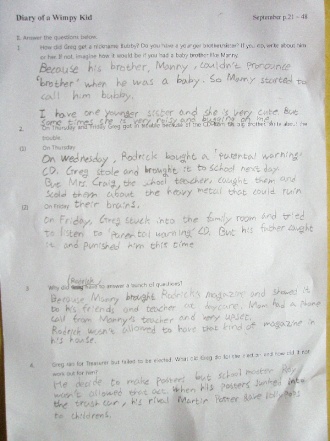 Diary of a Wimpy Kid September p.21 – 48
Answer the questions below.
1. How did Greg get a nickname Bubby? Do you have a younger brother/sister? If you do, write about him
or her. If not, imagine how it would be if you had a baby brother like Manny.
Because his brother, Manny, couldn't pronounce
"brother" when he was a baby. So Manny started to
call him bubby.
I have one younger sister and she is very cute. But
some times she is very noisy and
2. On Thursday and Friday Greg got in trouble because of the CD from his big brother. Write about the
trouble.
(1) On Thursday
On Wednesday, Rodrick bought a "Parental warning"
CD. Greg stole and brought it to school next day.
But Mrs Craig, the school teacher, caught them and
scold them about the heavy metal that could ruin
their brains.
(2) On Friday
On Friday, Greg stuck into the family room and tried
to listen to "Parental warning" CD. But his father caught
it and punished him this time
3. Why did Rodrick have to answer a bunch of questions?
Because Manny brought Rodrick's magazine and showed it
to his friends and teacher at daycare. Mom had a phone
call from Manny's teacher and very upset.
Rodrick wasn't allowed to have that kind of magazine in
his house.
4. Greg ran for Treasurer but failed to be elected. What did Greg do for the election and how did it not
work out for him?
He decide to make posters but school
wasn't allowed that act. When his posters junked into
the trash can, his rival Martin Porter gave lollipops
to childrens.